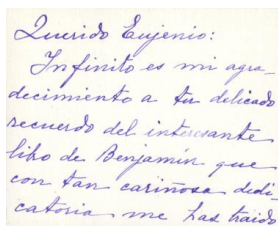 Querido Eujenio:
Infinito es mi agra-
decimiento a tu delicado
recuerdo del interesante
libo de Benjamín que
con tan cariñosa dedi-
catoria me has traido